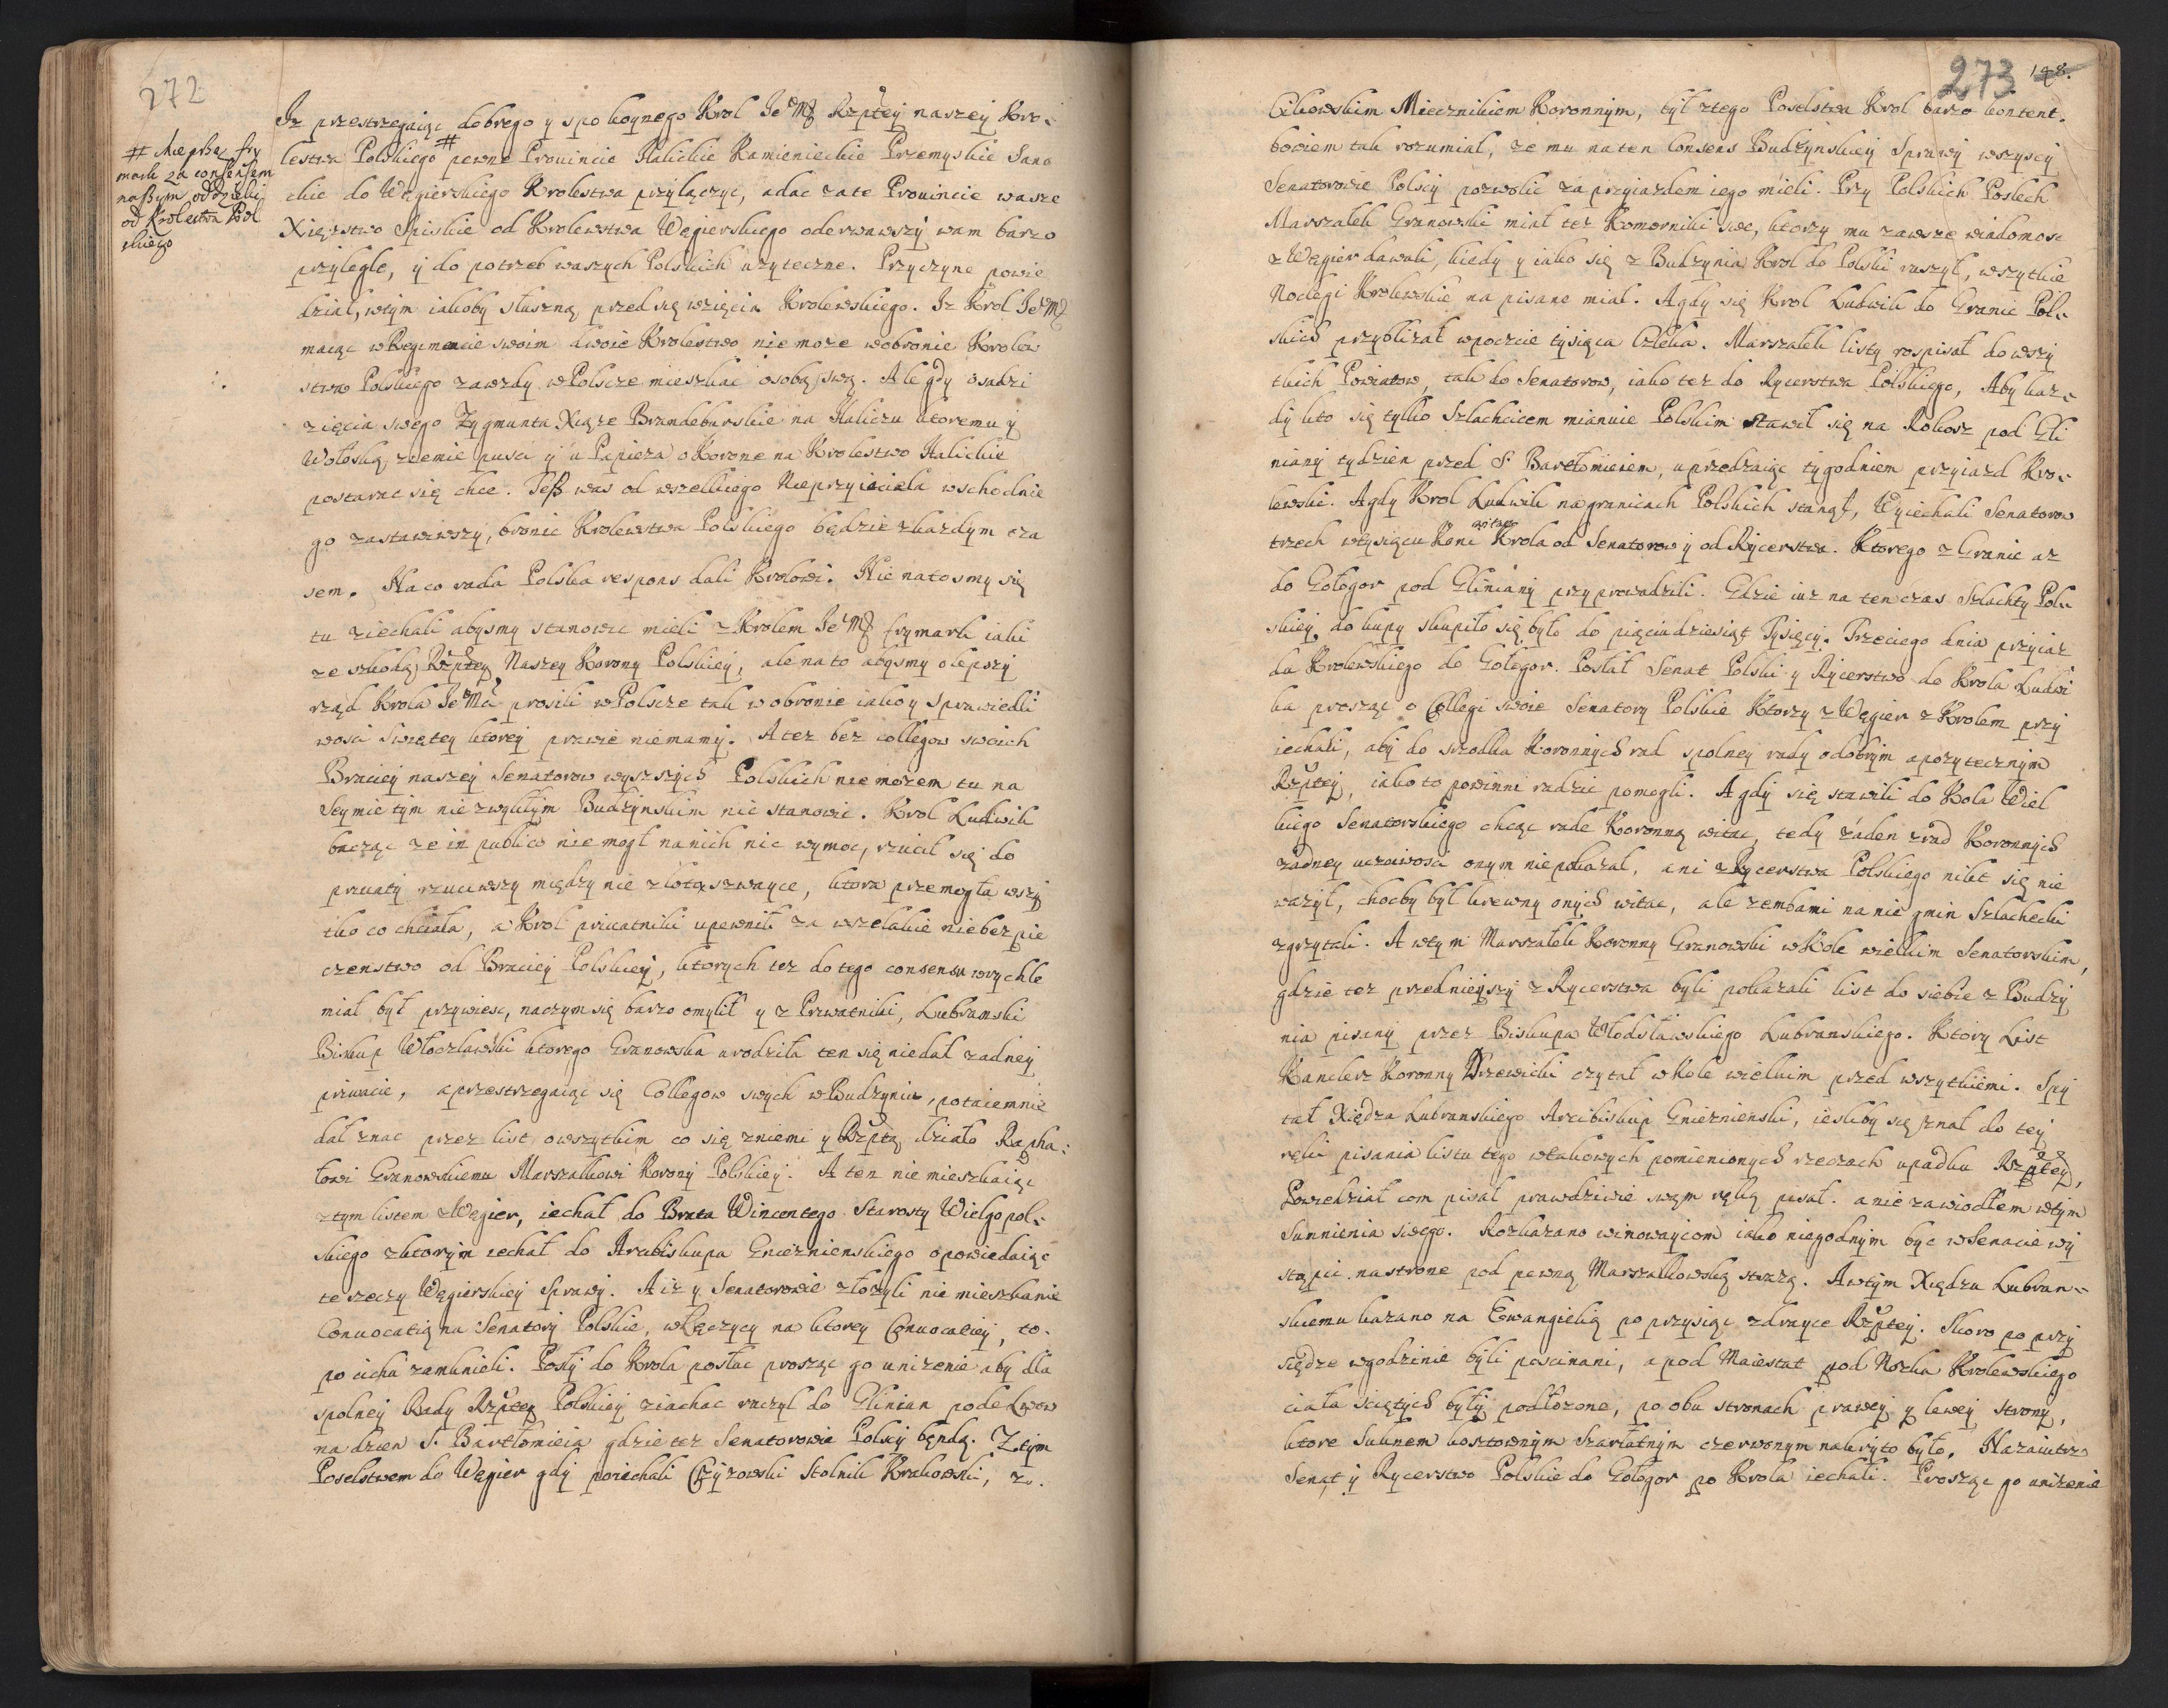 272
Iz przestrzegaiąc dobrego y spokoynego Krol Je Mć Rzptey naszey Kro-
lestwa Polskiego # pewne Prouincie Halickie Kamienieckie Przemyskie Sano
ckie do Węgierskiego Krolestwa przyłączyć, a dac za te Prouincie wasze
Xięstwo Spiskie od Krolewstwa Węgierskiego oderwawszy wam barzo
przyległe, y do potrzeb waszych Polskich użyteczne. Przyczyne powie
dział, w tym iakoby słuszną przed się wzięcia Krolewskiego. Iz Krol Je Mć
maiąc w Regimencie swoim dwoie Krolestwo nie moze w obronie Krolew
stwa Polskiego zawzdy w Polszcze mieszkac osobą swą. Ale gdy osadzi
zięcia swego Zygmunta Xiąze Brandeburskie na Haliczu ktoremu y
Wołoską ziemie pusci y u Papieza o Korone na Krolestwo Halickie
postarac się chce. Teß was od wszelkiego Nieprzyiaciela wschodnie
go zastawiwszy, bronic Krolewstwa Polskiego będzie z kazdym cza
sem. Na co rada Polska respons dali Krolowi. Nie na to smy się
tu ziechali abysmy stanowic mieli z Krolem Je Mć frymark iaki
ze szkodą Rzptey Naszey Korony Polskiey, ale na to abysmy o lepszy
rząd Krola Je Mći prosili w Polszcze tak w obronie iako y sprawiedli
wosci Swiętey ktorey prawie niemamy. A tez bez collegow swoich
Braciey naszey Senatorow wyszszych Polskich nie mozem tu na
Seymie tym nie zwykłym Budzynskim nic stanowic. Krol Ludwik
bacząc ze in publico nie mogł na nich nic wymoc, rzucił się do
prywaty rzuciwszy między nie złotą szwayce, ktora przemogła wszy
tko co chciała, a Krol priwatniki upewnił za wszelakie niebezpie
czenstwo od Braciey Polskiey, ktorych tez do tego consensu wrychle
miał był przywiesc, na czym się barzo omylił y z Prywatniki, Lubranski
Biskup Włoczławski ktorego Granowska urodziła ten się niedał zadney
priwacie, a przestrzegaiąc się Collegow swych w Budzyniu, potaiemnie
dał znac przez list o wszytkim co się z niemi y Rzptą działo Rapha-
łowi Granowskiemu Marszałkowi Korony Polskiey. A ten nie mieszkaiąc
z tym listem z Węgier, iechał do Brata Wincentego Starosty Wielgopol-
skiego z ktorym iechał do Arcibiskupa Gnieznienskiego opowiedaiąc
te rzeczy Węgierskiey Sprawy. A iz y Senatorowie złozyli nie mieszkanie
Conuocatią na Senatory Polskie, w Łęczycy na ktorey Conuocatiey, to-
po cichu zamknieli. Posły do Krola posłac prosząc go unizenie aby dla
spolney Rady Rzptey Polskiey ziachac raczył do Glinian pode Lwow
na dzien S. Bartłomieia gdzie tez Senatorowie Polscy będą. Z tym
Poselstwem do Węgier gdy poiechali Czyzowski Stolnik Krakowski, z.
# Nieprzez fry
mark za consensem
naßym oddzielic
od Krolestwa Pol
skiego
273 198.
Cikowskim Miecznikiem Koronnym, był z tego Poselstwa Krol barzo kontent.
bowiem tak rozumiał, ze mu na ten Consens Budzynskiey Sprawy wszyscy
Senatorowie Polscy pozwolic za przyiazdem iego mieli. Przy Polskich Posłech
Marszałek Granowski miał tez Komorniki swe, ktorzy mu zawsze wiadomosc
z Węgier dawali, kiedy y iako się z Budzynia Krol do Polski ruszył, wszytkie
Noclegi Krolewskie na pisane miał. A gdy się Krol Ludwik do Granic Pol-
skich przyblizał w poczcie tysiąca Człeka. Marszałek listy rospisał do wszy
tkich Powiatow, tak do Senatorow, iako tez do Rycerstwa Polskiego, Aby kaz-
dy kto się tylko Szlachcicem mianuie Polskim stawił się na Rokosz pod Gli
niany tydzien przed S. Bartłomieiem, uprzedzaiąc tygodniem przyiazd Kro-
lewski. A gdy Krol Ludwik na granicach Polskich stanął, Wyiechali Senatorow
trzech w tysiącu Koni witac Krola od Senatorow y od Rycerstwa. Ktorego z Granic az
do Gołogor pod Gliniany przyprowadzili. Gdzie iuz na ten czas Szlachty Pols
skiey do kupy skupiło się było do pięciudziesiąt Tysięcy. Trzeciego dnia przyiaz
du Krolewskiego do Gołogor. Posłał Senat Polski y Rycerstwo do Krola Ludwi
ka prosząc o Collegi swoie Senatory Polskie Ktorzy z Węgier z Krolem przy
iechali, aby do srzodka Koronnych rad spolney rady o dobrym a pozytecznym
Rzptey, iako to powinni radzic pomogli. A gdy się stawili do Koła Wiel
kiego Senatorskiego chcąc rade Koronną witac, tedy żaden z rad Koronnych
zadney uczciwosci onym nie pokazał, ani z Rycerstwa Polskiego nikt się nie
wazył, chocby był krewny onych witac, ale zembami na nie gmin Szlachecki
zgrzytali. A w tym Marszałek Koronny Granowski w Kole wielkim Senatorskim,
gdzie tez przednieyszy z Rycerstwa byli pokazali list do siebie z Budzy
nia pisany przez Biskupa Włodsławskiego Lubranskiego. Ktory List
Kanclerz Koronny Drzewicki czytał w Kole wielkim przed wszytkiemi. Spy
tał Xiędza Lubranskiego Arcibiskup Gnieznienski, iesliby się znał do tey
ręki pisania listu tego w takowych pomienionych rzeczach upadku Rzptey,
Powiedział com pisał prawdziwie swym ręką pisał. a nie zawiodłem w tym
Sumnienia swego. Rozkazano winowaycom iako niegodnym być w Senacie wy
stąpic na strone pod pewną Marszałkowską strażą. A w tym Xiędzu Lubran-
skiemu kazano na Ewangielią poprzysiąc zdrayce Rzptey. Skoro po przy
siędze w godzinie byli poscinani, a pod Maiestat pod Nozka Krolewskiego
ciała sciętych były podłozone, po obu stronach prawey y lewey strony,
ktore Suknem kosztownym Szarłatnym czerwonym nakryto było. Nazaiutrz
Senat y Rycerstwo Polskie do Gołogor po Krola iechali. Prosząc go unizenie